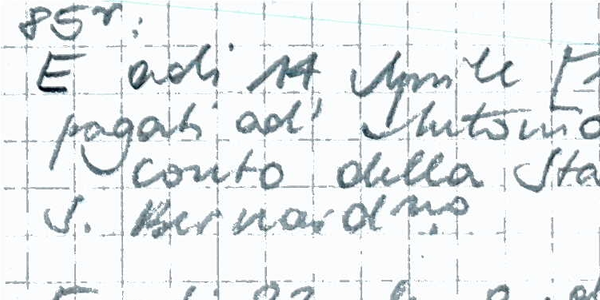 85r:
E adi 14 Aprile [
pagati ad' Antonio
conto della Sta
S. Bernardno
E adi